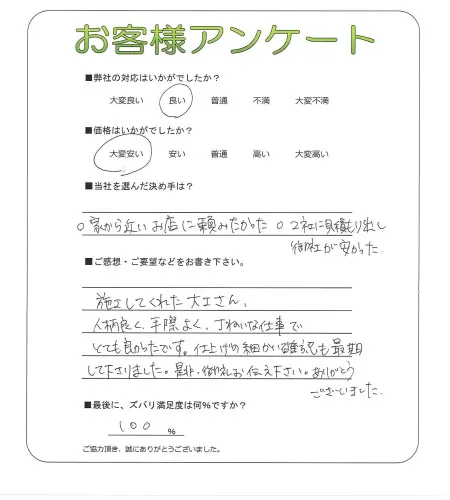 お客様アンケート
■弊社の対応はいかがでしたか？
大変良い 良い 普通 不満 大変不満
■価格はいかがでしたか？
大変安い 安い 普通 高い 大変高い
■当社を選んだ決め手は？
○家から近いお店に頼みたかった ○2社に見積もり出し
御社が安かった.
■ご感想・ご要望などをお書き下さい。
施工してくれた大工さん、
人柄良く、手際よく、丁ねいな仕事で
とても良かったです。仕上げの細かい も
して下さりました。是非、御礼お伝え下さい。ありがとう
ございました.
■最後に、ズバリ満足度は何％ですか？
100 %
ご協力頂き、誠にありがとうございました。